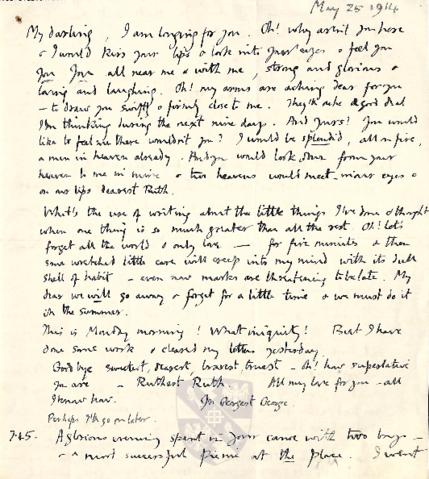 May 25 1914
My darling, I am longing for you. Oh! why aren't you here
& I would kiss your lips & look into your eyes & feel you
You You all near me & with me, strong and glorious &
loving and laughing. Oh! my arms are aching dear for you
– to draw you swiftly & firmly close to me. They'll ache a good deal
I'm thinking during the next nine days. And yours? You would
like to feel me there wouldn't you? I would be splendid, all on fire,
a man in heaven already. And you would look down from your
heaven to me in mine & two heavens would meet in our eyes &
on our lips dearest Ruth.
What's the use of writing about the little things I've done & thought
when one thing is so much greater than all the rest. Oh! let's
forget all the world & only love — for five minutes & then
some wretched little care will creep into my mind with its dull
shell of habit – even now marks are threatening to be late. My
dear we will go away & forget for a little time & we must do it
in the summer.
This is Monday morning! What iniquity! But I have
done some work & cleared my letters yesterday.
Good bye sweetest, dearest, bravest, truest – oh! how superlative
you are – Ruthest Ruth All my love for you – all
I know how. Yr Georgest George.
Perhaps I'll go on later.
7.45. A glorious evening spent in your canoe with two boys –
& a most successful picnic at the place. I went